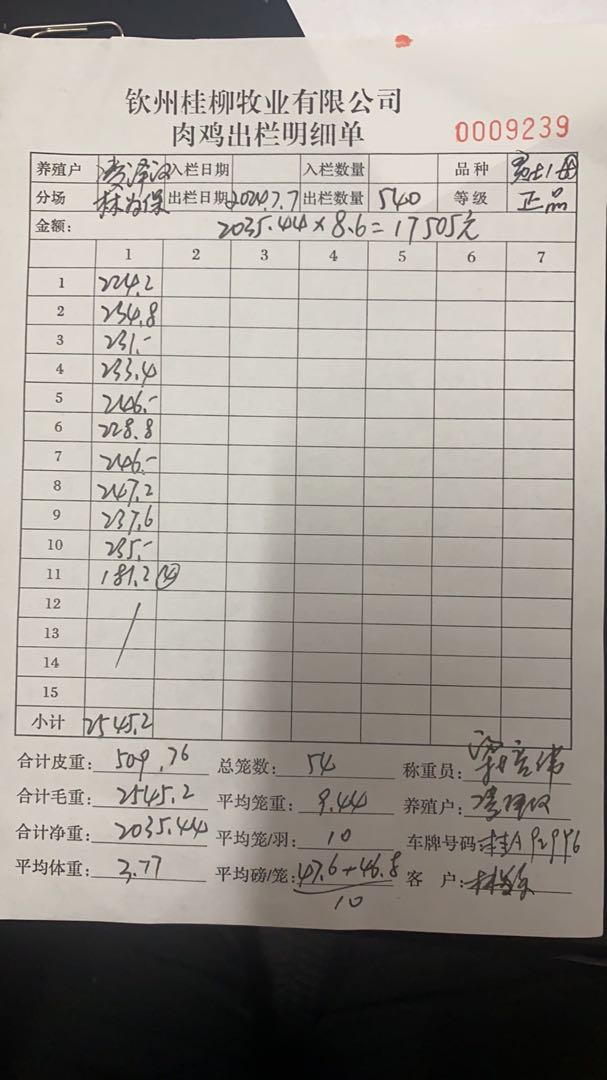 钦州桂柳牧业有限公司
肉鸡出栏明细单 0009239
养殖户 入栏日期 入栏数量 品种
分场 林为保 出栏日期 2024.7.7 出栏数量 540 等级 正品
金额: 2035.44×8.6=17505元
1 2 3 4 5 6 7
1 224.2
2 234.8
3 231.-
4 233.4
5 246.-
6 228.8
7 246.-
8 247.2
9 237.6
10 235.-
11 181.2 ④
12
13
14
15
小计 2545.2
合计皮重: 509.76 总笼数: 54 称重员:
合计毛重: 2545.2 平均笼重: 9.44 养殖户:
合计净重: 2035.44 平均笼/羽: 10 车牌号码: 桂A92996
平均体重: 3.77 平均磅/笼: 47.6+46.8 客 户:
10